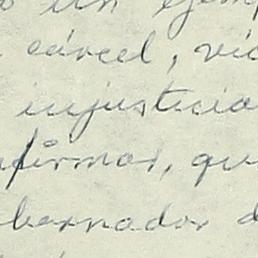 un ejemp
cárcel, vic
injusticia
firmar, qu
bernador d